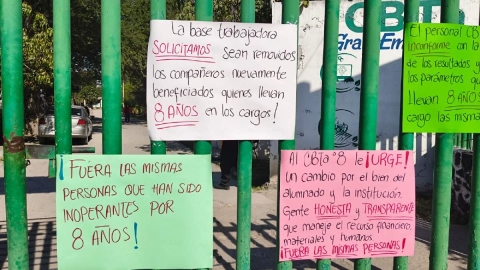 La base trabajadora
SOLICITAMOS sean removidos
los compañeros nuevamente
beneficiados quienes llevan
8 AÑOS en los cargos!
¡FUERA LAS MISMAS
PERSONAS QUE HAN SIDO
INOPERANTES POR
8 AÑOS!
Al CBTa°8 le ¡URGE!
Un cambio por el bien del
alumnado y la institución.
Gente HONESTA y TRANSPARENTE
que maneje el recurso financiero,
materiales y humanos
¡FUERA LAS MISMAS PERSONAS!
El personal
inconforme con
de los resultados y
los parámetros
llevan 8 AÑOS
cargo
CBT
Gra